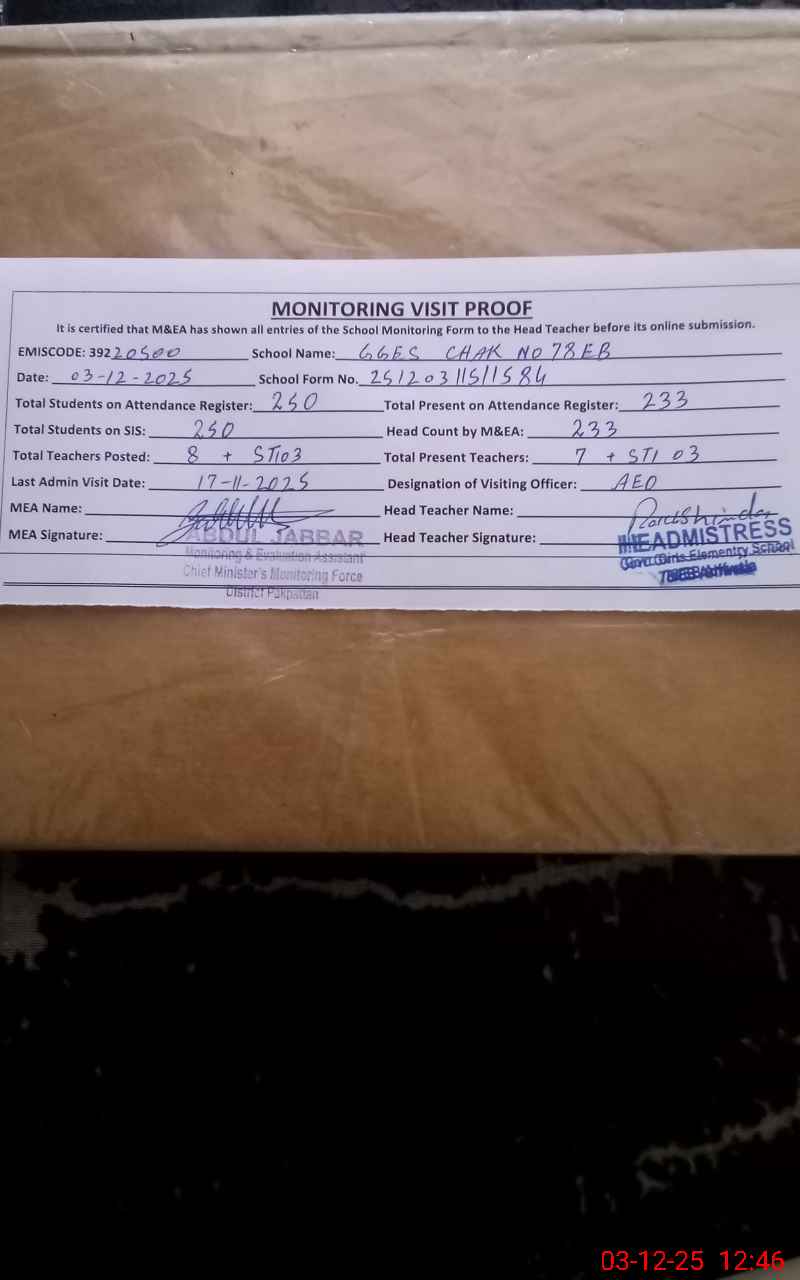 MONITORING VISIT PROOF
It is certified that M&EA has shown all entries of the School Monitoring Form to the Head Teacher before its online submission.
EMISCODE: 39220500 School Name: GGES CHAK NO 78EB
Date: 03-12-2025 School Form No. 251203115111584
Total Students on Attendance Register: 250 Total Present on Attendance Register: 233
Total Students on SIS: 250 Head Count by M&EA: 233
Total Teachers Posted: 8 + STI03 Total Present Teachers: 7 + STI 03
Last Admin Visit Date: 17-11-2025 Designation of Visiting Officer: AEO
MEA Name: Head Teacher Name:
MEA Signature: ABDUL JABBAR Head Teacher Signature: HEADMISTRESS
Monitoring & Evaluation Assistant Girls Elementry School
Chief Minister's Monitoring Force
District Pakpattan
03-12-25 12:46